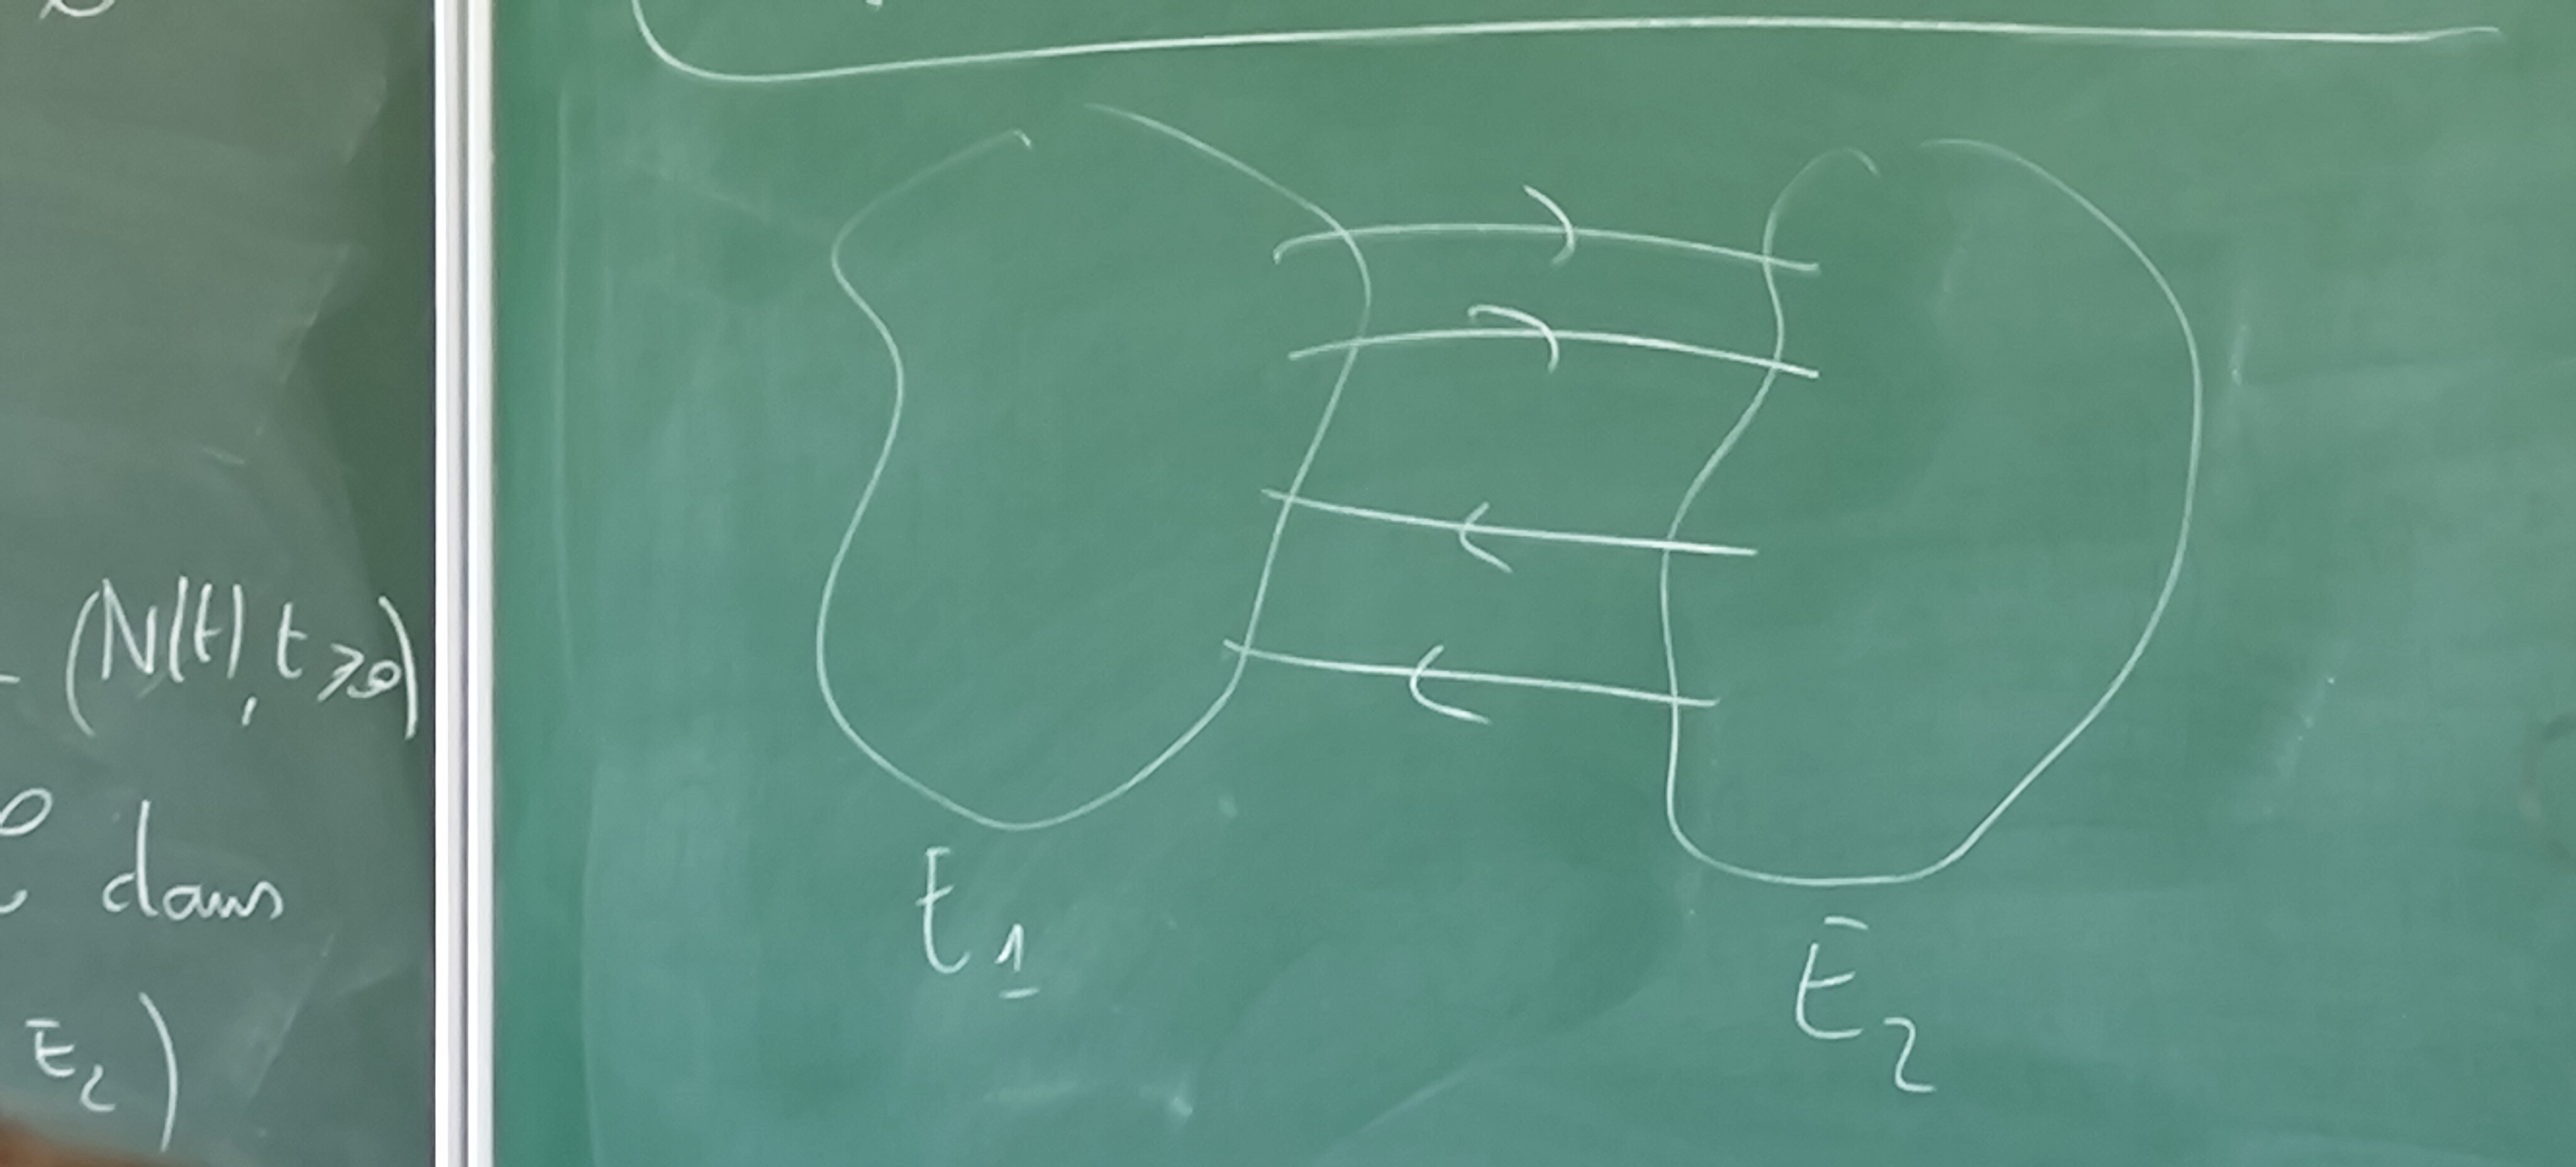 (N(t), t ⩾ 0)
dans
E₂)
E₁
E₂